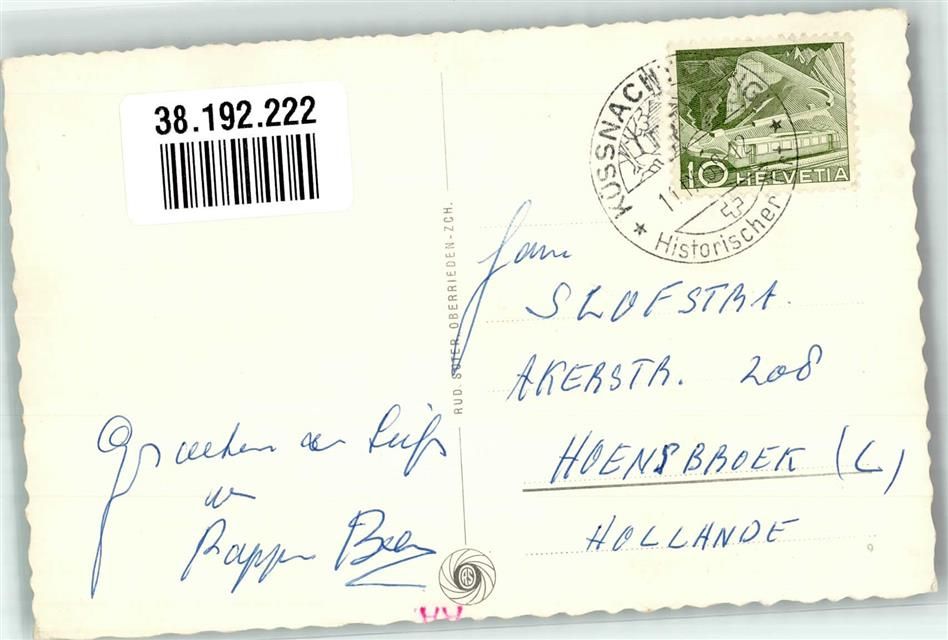 38.192.222
KÜSSNACHT
Historischer
10 HELVETIA
RUD. SUTER, OBERRIEDEN-ZCH.
Fam
SLOFSTRA.
AKERSTR. 208
HOENSBROEK (L)
HOLLANDE
Groeten en liefs
Pappie
RS
9